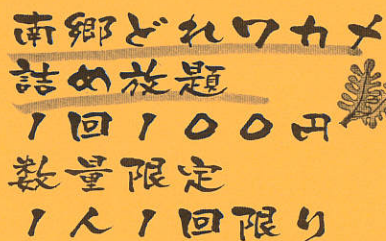 南郷どれワカメ
詰め放題
1回100円
数量限定
1人1回限り